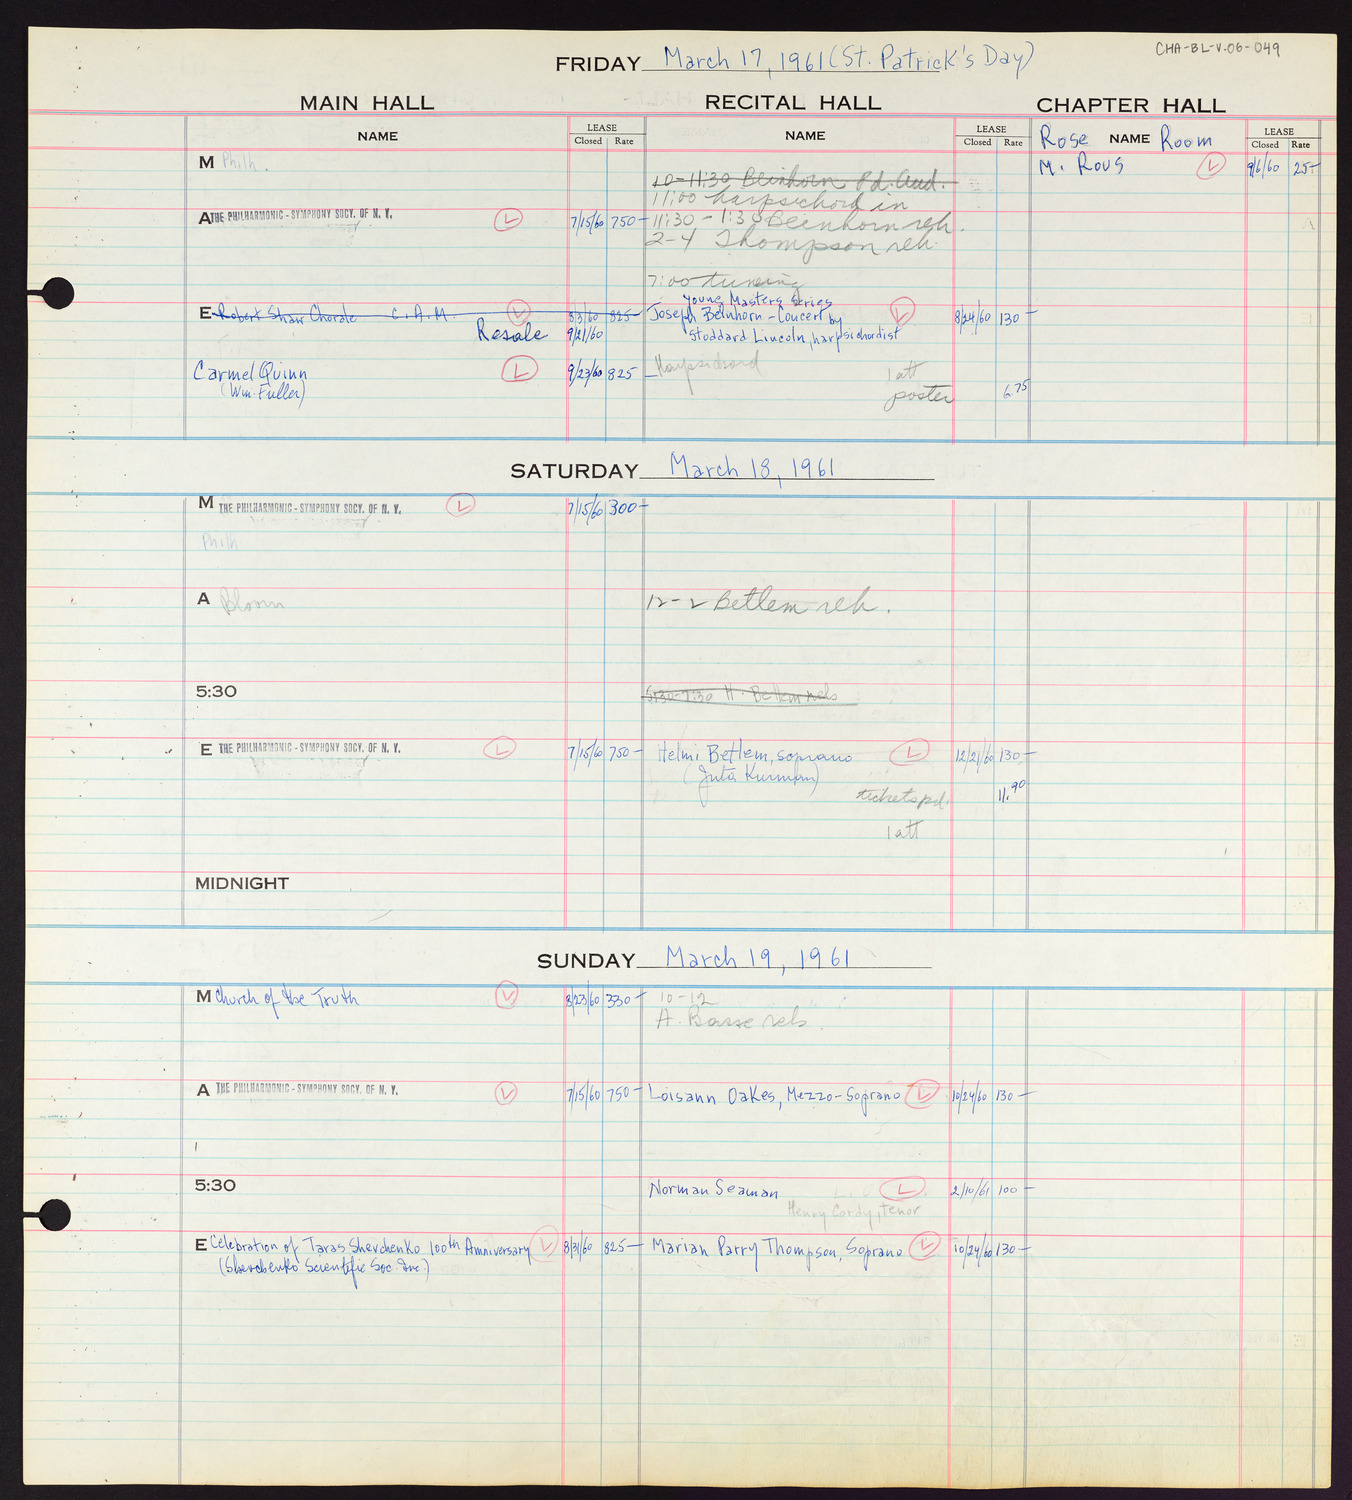 CHA-BL-V.06-049
FRIDAY March 17, 1961 (St. Patrick's Day)
MAIN HALL RECITAL HALL CHAPTER HALL
NAME LEASE Closed Rate NAME LEASE Closed Rate Rose NAME Room LEASE Closed Rate
M Philh. M. Rous L 9/6/60 25-
10-11:30 Beinhorn Pd. Aud.
11:00 harpsichord in
A THE PHILHARMONIC-SYMPHONY SOCY. OF N. Y. L 7/15/60 750- 11:30-1:30 Beinhorn reh.
2-4 Thompson reh.
7:00 tuning
Young Masters Series
E Robert Shaw Chorale C.A.M. L 8/3/60 825- Joseph Beinhorn-Concert by L 8/24/60 130-
Resale 9/21/60 Stoddard Lincoln, harpsichordist
Carmel Quinn L 9/23/60 825- Harpsichord 1 att
(Wm. Fuller) poster 6.75
SATURDAY March 18, 1961
M THE PHILHARMONIC-SYMPHONY SOCY. OF N. Y. L 7/15/60 300-
Philh
A Bloom 12-2 Betlem reh.
5:30 5:30-7:30 H. Betlem reh
E THE PHILHARMONIC-SYMPHONY SOCY. OF N. Y. L 7/15/60 750- Helmi Betlem, soprano L 12/21/60 130-
(Juta Kurman)
tickets pd. 11.90
1 att
MIDNIGHT
SUNDAY March 19, 1961
M Church of the Truth L 8/23/60 330- 10-12
A. Basse reh.
A THE PHILHARMONIC-SYMPHONY SOCY. OF N. Y. L 7/15/60 750- Loisann Oakes, Mezzo-Soprano L 10/24/60 130-
5:30 Norman Seaman L 2/10/61 100-
Henry Cordy, tenor
E Celebration of Taras Shevchenko 100th Anniversary L 8/31/60 825- Marian Parry Thompson, Soprano L 10/24/60 130-
(Shevchenko Scientific Soc. Inc.)